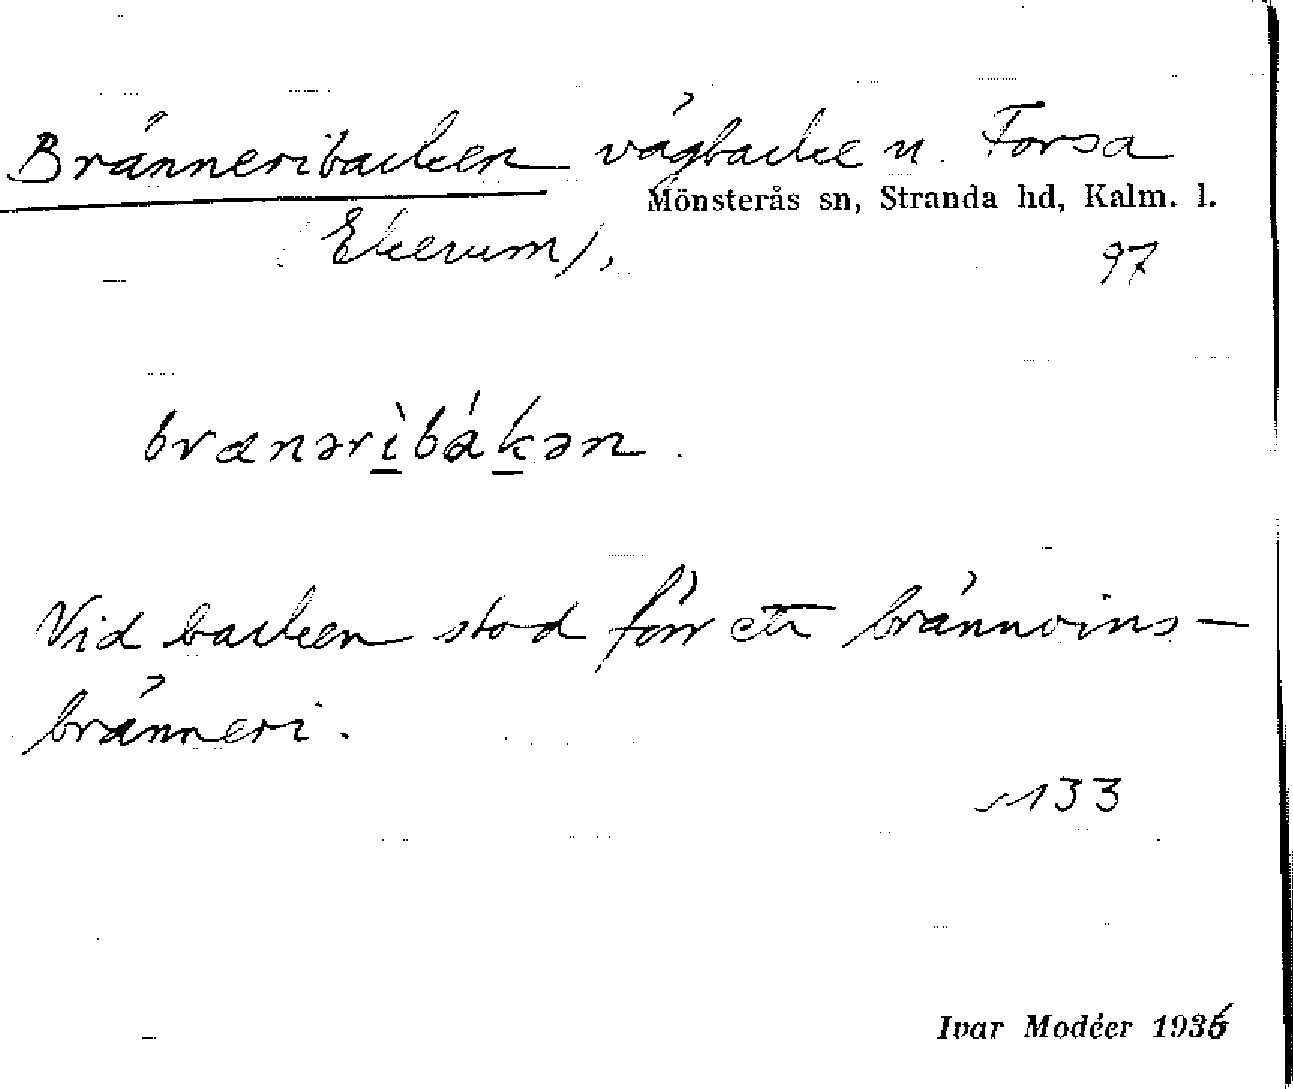 Bränneribacken vägbacke n. Forsa
Mönsterås sn, Stranda hd, Kalm. l.
(Ekerum), 97
brænərìbákən.
Vid backen stod förr ett brännvins-
bränneri.
133
Ivar Modéer 1936